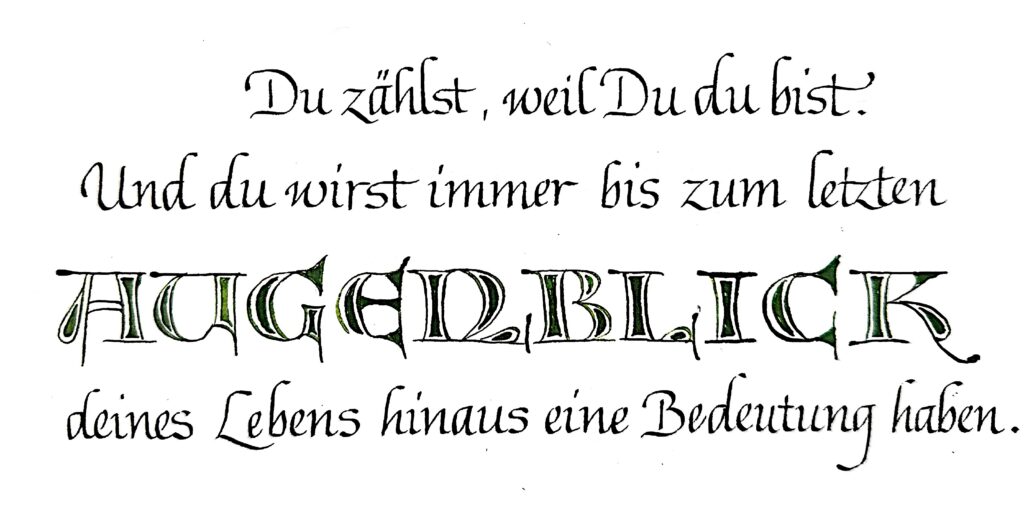 Du zählst, weil Du du bist.
Und du wirst immer bis zum letzten
AUGENBLICK
deines Lebens hinaus eine Bedeutung haben.